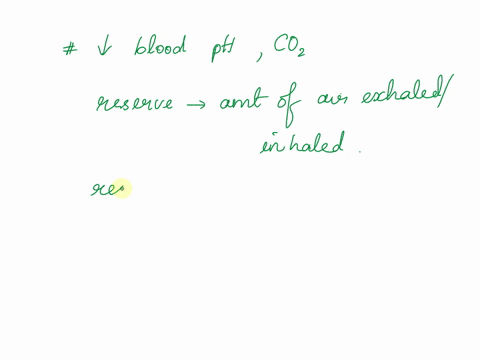 # ↓ blood pH , CO₂
reserve → amt of air exhaled/
inhaled .
res